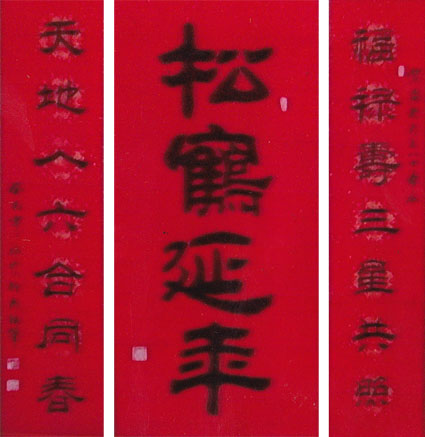 福祿壽三星共照
松鶴延年
天地人六合同春